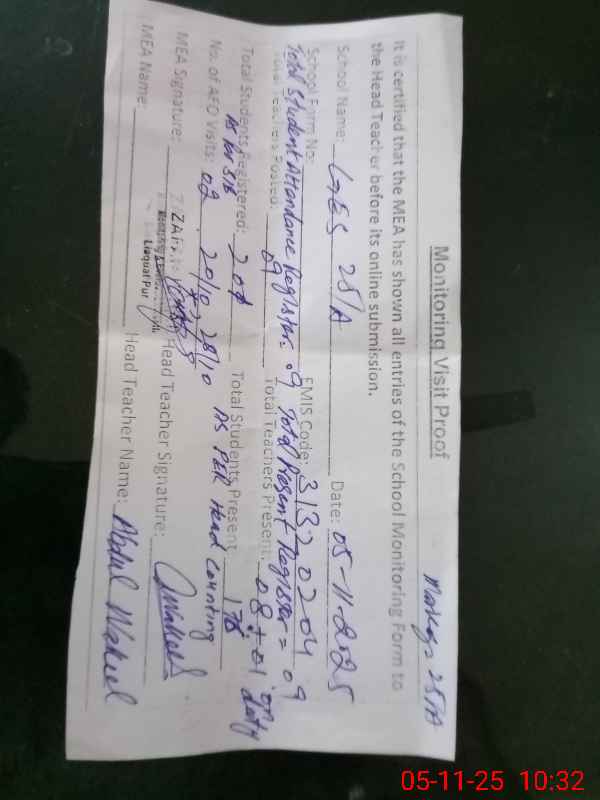 Monitoring Visit Proof
25/A
It is certified that the MEA has shown all entries of the School Monitoring Form to
the Head Teacher before its online submission.
School Name: GES 25/A Date: 05-11-2025
School Form No: EMIS Code: 31320204
Total Student Attendance Register: 09 Total Present Register = 09
Total Teachers Posted: 09 Total Teachers Present: 08 + 01 on duty
Total Students Registered: Total Students Present: 178
As Per SIB As PER Head Counting
No. of AEO Visits: 02 20/10 28/10
MEA Signature: Head Teacher Signature:
Liaquat Pur
MEA Name: Head Teacher Name: Abdul Waheed
05-11-25 10:32